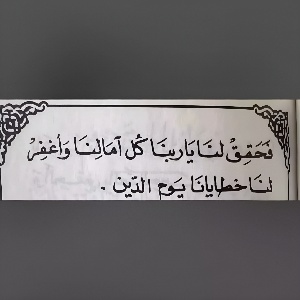 فَحَقِقْ لنَا يَا رَبنَا كُل آمَالِنَا وَأغفِرْ
لنَا خطَايانَا يَوم الدّين .